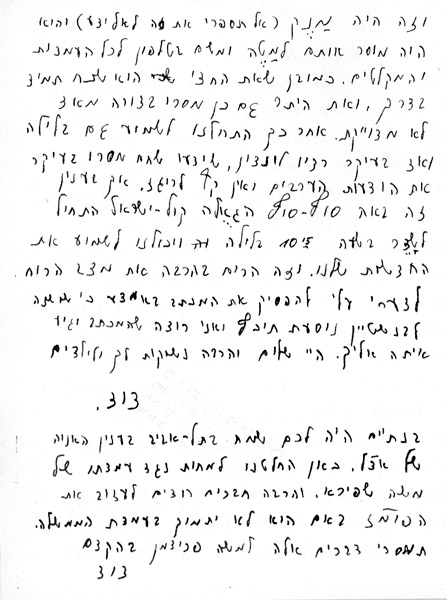 וזה היה מַנֶק (אל תספרי את זה לאליצע) והוא
היה מוסר אותם למַטֶה ומשם בטלפון לכל העמדות
והמקלטים. כמובן שאת החצי הוא שכח תמיד
בדרך, ואת היתר גם כן מסרו בצורה מאד
לא מדוייקת. אחר כך התחלנו לשמוע גם בלילה
ואז בעיקר רדיו לונדון, שידעו שחם מסרו בעיקר
את הודעות הערבים ואין רק לרוגז. אך בענין
זה באה סוף-סוף הגאולה קול-ישראל התחיל
לשַדֵר בשעה 10 בלילה ויכולנו לשמוע את
החדשות שלנו. וזה הרים בהרבה את מצב הרוח
לצערי עלי להפסיק את המכתב באמצע כי שושנה
לבנשטיין נוסעת תיכף ואני רוצה שהמכתב יגיע
איתה אליך. היי שלום והרבה נשיקות לך ולילדים
דוד.
בנתיים היה לכם שמח בתל-אביב בענין האניה
של אצ״ל. כאן החלטנו למחות נגד עמדתו של
משה שפירא. והרבה חברים רוצים לעזוב את
הפומ״ז באם הוא לא יתמוך בעמדת הממשלה.
תמסרי דברים אלה למשה פרידמן בהקדם
דוד